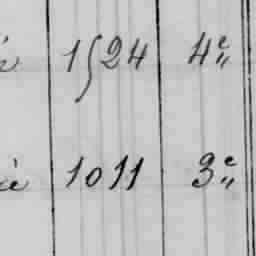 1524 4e
1011 3e